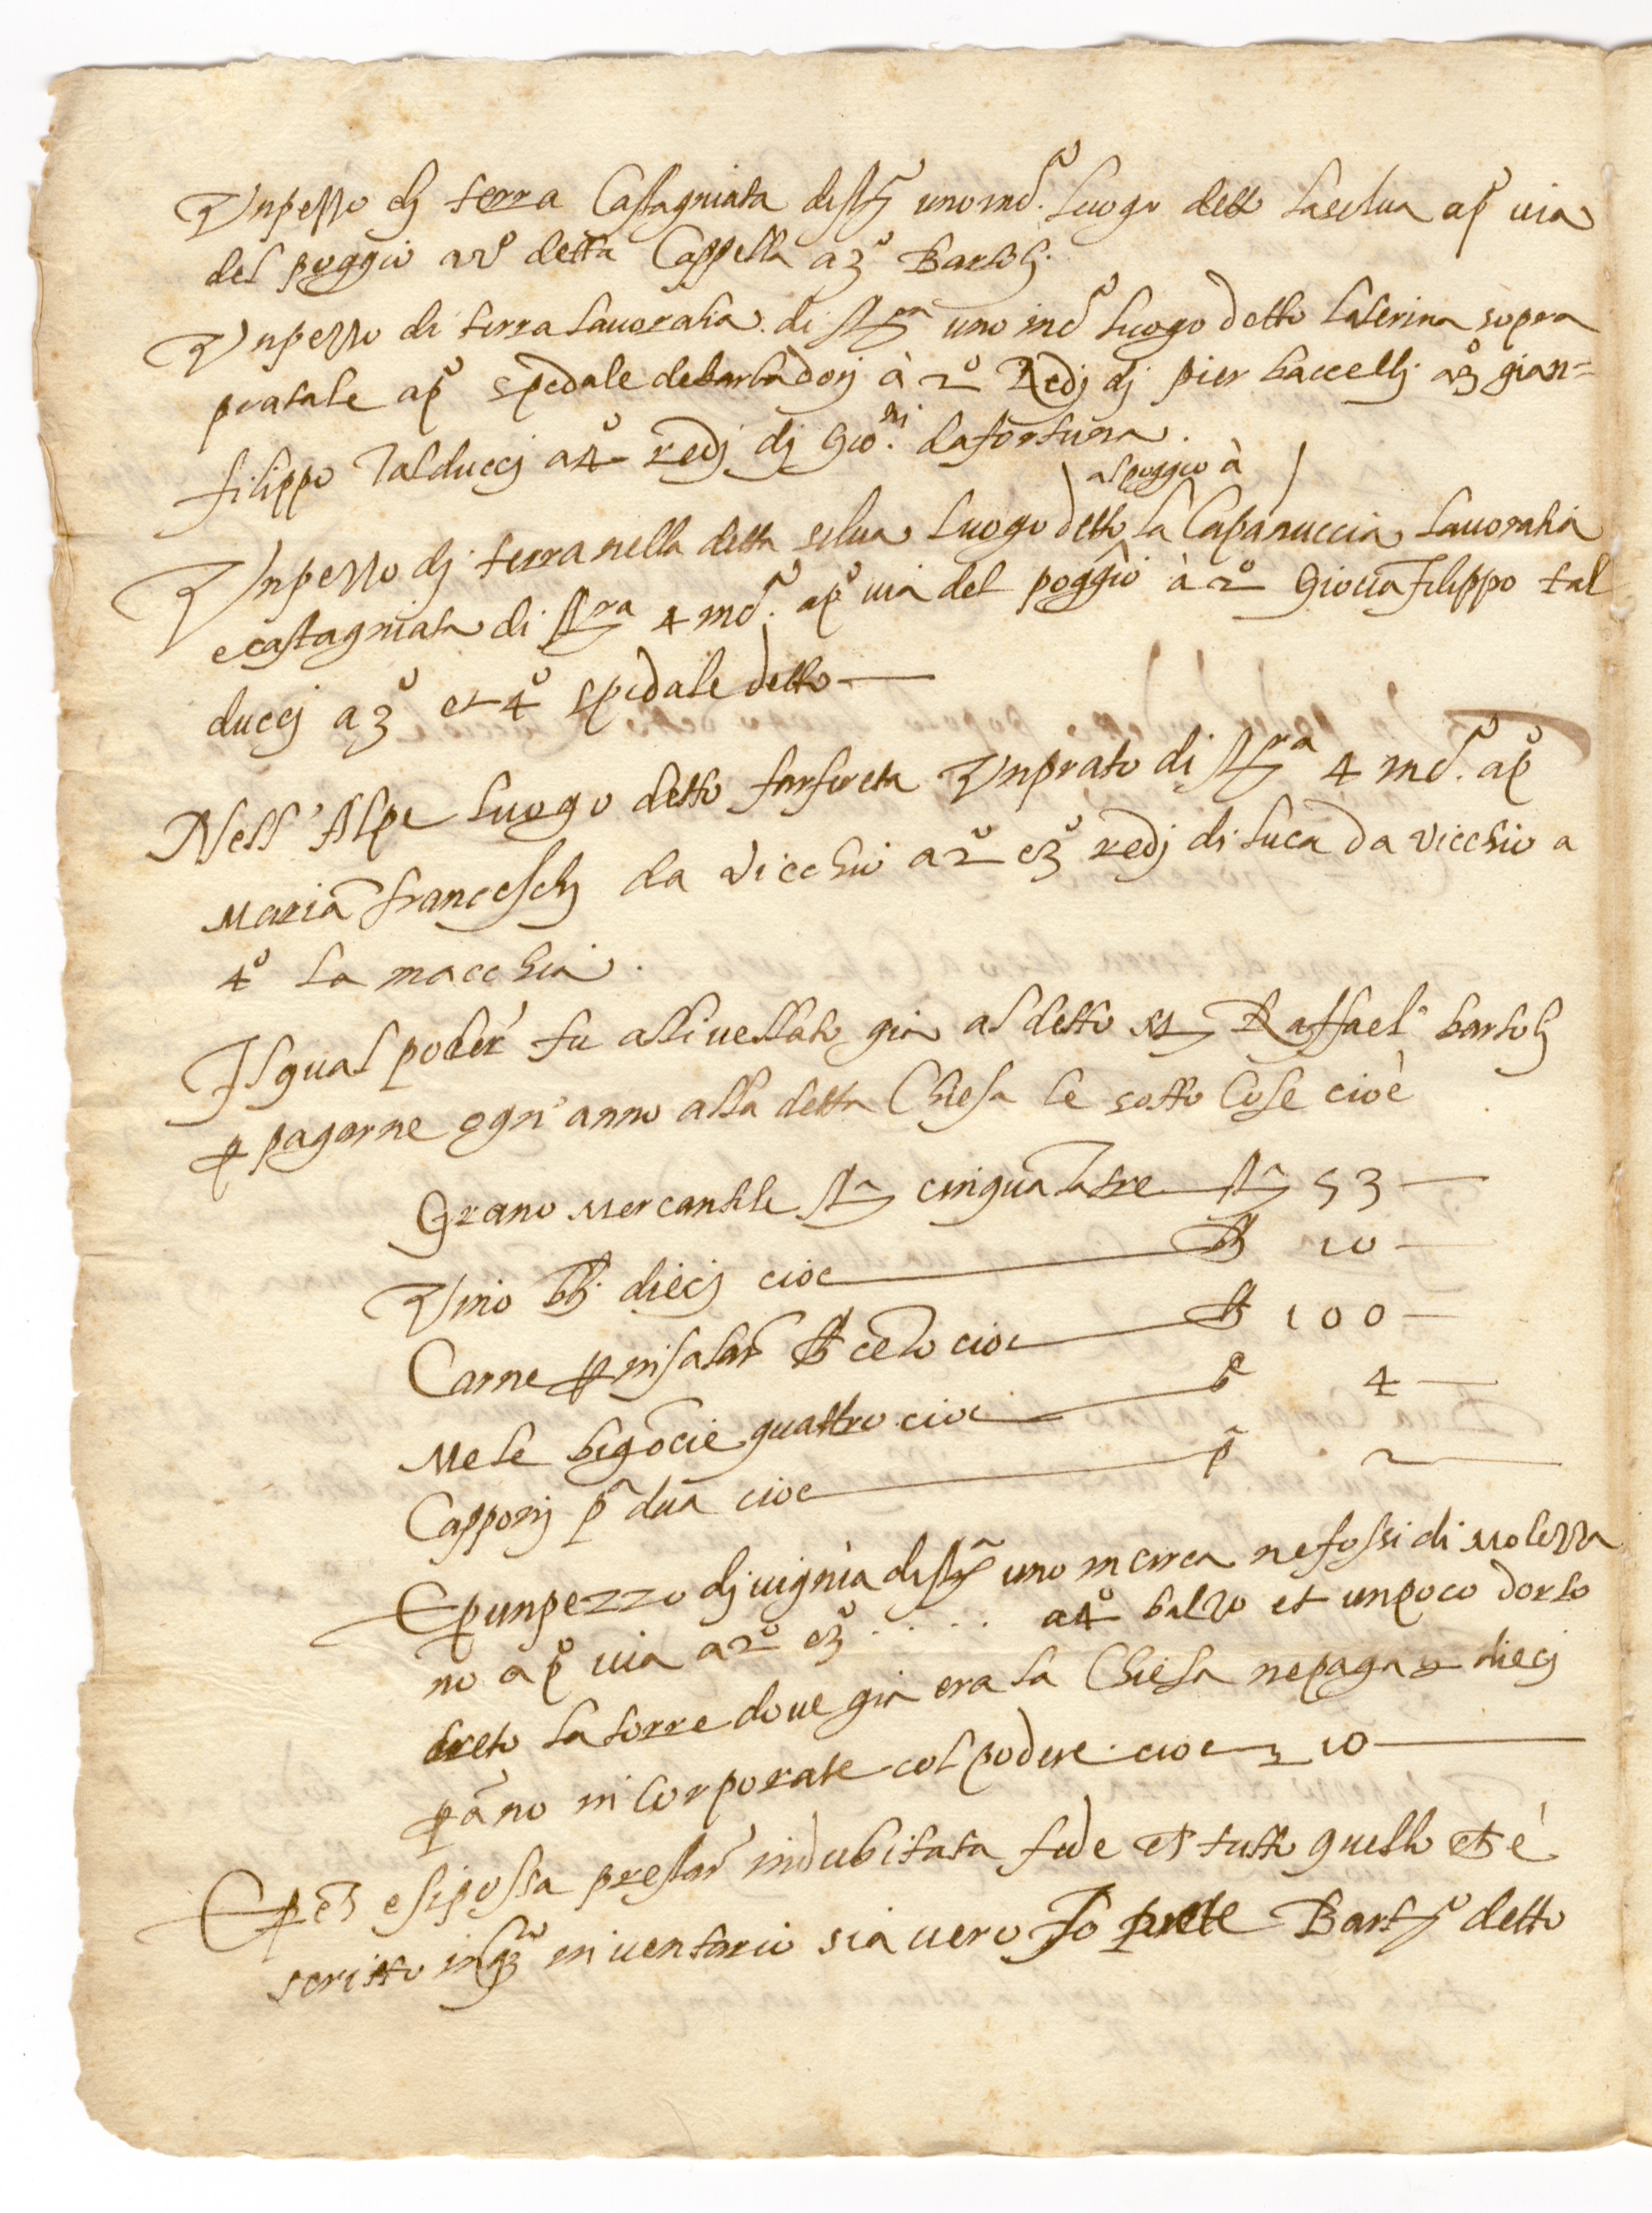 Un pezzo dj terra Castagniata di st.ra uno in c.o luogo detto la selva a p.o via
del poggio a 2.o detta Cappella a 3.o Bartolj.
Un pezzo di terra lavoratia di st.ra uno in c.o luogo detto laterina sopra
pratale a p.o spedale de barbadorj à 2.o Redj dj pier baccellj a 3.o gian=
filippo Talduccj a 4.o redj dj Gio.ni dafortuna.
al poggio à
Un pezzo dj terra nella detta selva luogo detto la Capanuccia lavoratia
e castagniata di st.ra 4 in c.o a p.o via del poggio à 2.o Giovãfilippo tal
duccj a 3.o et 4.o spedale detto
Nell'Alpe luogo detto farfereta Un prato di st.ra 4 in c.o a p.o
Mariã francescj da Vicchio a 2.o e 3.o redj di luca da Vicchio a
4.o la macchia.
Il qual poder' fu allivellato già al detto M. Raffael.o bartolj
p pagarne ogn'anno alla detta Chiesa le sotto cose cioè
Grano Mercantile sta cinquãtatre sta 53
Vino bb. diecj cioe bb 10
Carne p insalar lb cẽto cioe lb 100
Mele bigõcie quattro cioe b.e 4
Capponj p.a dua cioe p.a 2
E p un pezzo dj vignia di st.ra uno in circa ne fossi di Molezza
no a p.o via a 2.o e 3.o ..... a 4.o balzo et un poco dorto
dreto la torre dove già era la Chiesa ne paga diecj
p ãno in corporate col podere cioe 10
E p ch e si possa prestar indubitata fede ch tutto quello ch è
scritto in q.o inventario sia vero Io prete Bart.o detto